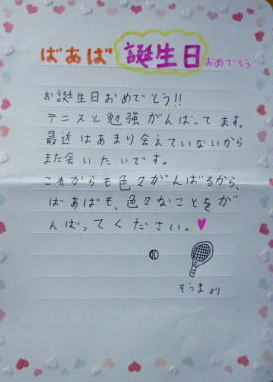 ばあば 誕生日 おめでとう
お誕生日おめでとう!!
テニスと勉強がんばってます。
最近はあまり会えていないから
また会いたいです。
これからも色々がんばるから、
ばあばも、色々なことをが
んばってください。♥
そうまより